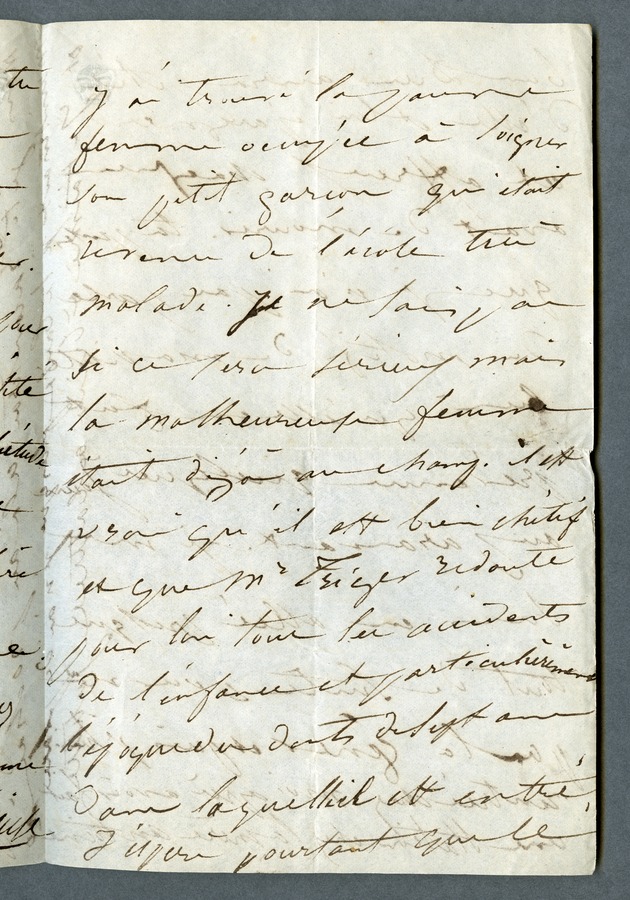 J'ai trouvé la jeune
femme occupée à soigner
son petit garcon qui était
revenu de l'école très
malade. Je ne sais pas
si ce sera sérieux mais
la malheureuse femme
était déjà au champ. il est
vrai qu'il est bien chétif
et que Mr Triger redoute
pour lui tous les accidents
de l'enfance et particulièrement
l'époque des dents de sept ans
Dans laquelle il est entré,
J'espère pourtant que le